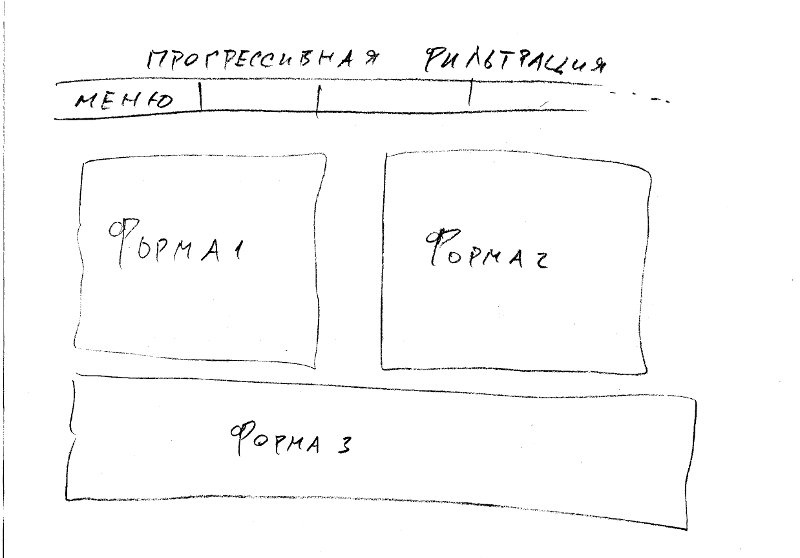 ПРОГРЕССИВНАЯ ФИЛЬТРАЦИЯ
МЕНЮ
ФОРМА 1
ФОРМА 2
ФОРМА 3